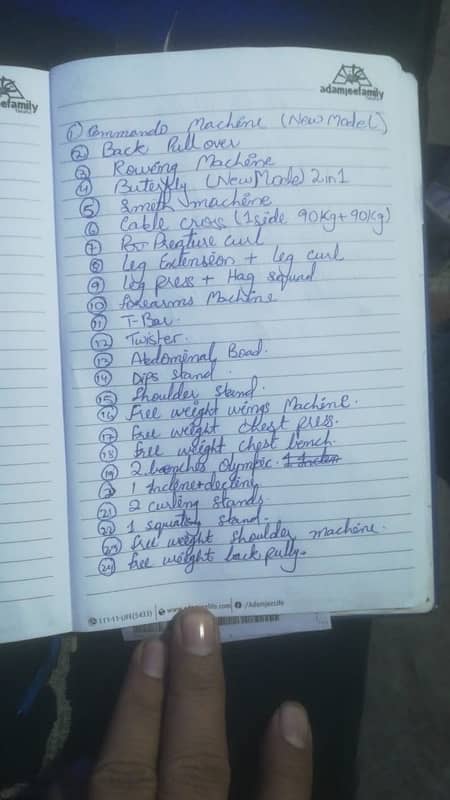 eefamily
adamjeefamily
① Commando Machine (New Model)
② Back Pull over
③ Rowing Machine
④ Buterfly (New Model) 2in1
⑤ Smeth machine
⑥ Cable cross (1 side 90kg+90kg)
⑦ curl
⑧ Leg Extension + Leg curl
⑨ Leg Press + Hag squad
⑩ forearms Machine
⑪ T-Bar.
⑫ Twister.
⑬ Abdominal Boad.
⑭ Dips stand.
⑮ Shoulder stand.
⑯ Free weight wings Machine.
⑰ free weight chest press.
⑱ free weight chest bench.
⑲ 2 benches Olympic.
⑳ 1 Incline+decline
㉑ 2 curling stands.
㉒ 1 squating stand.
㉓ free weight shoulder machine.
㉔ free weight back pully.
111-11-LIFE(5433) www.adamjeelife.com /AdamjeeLife